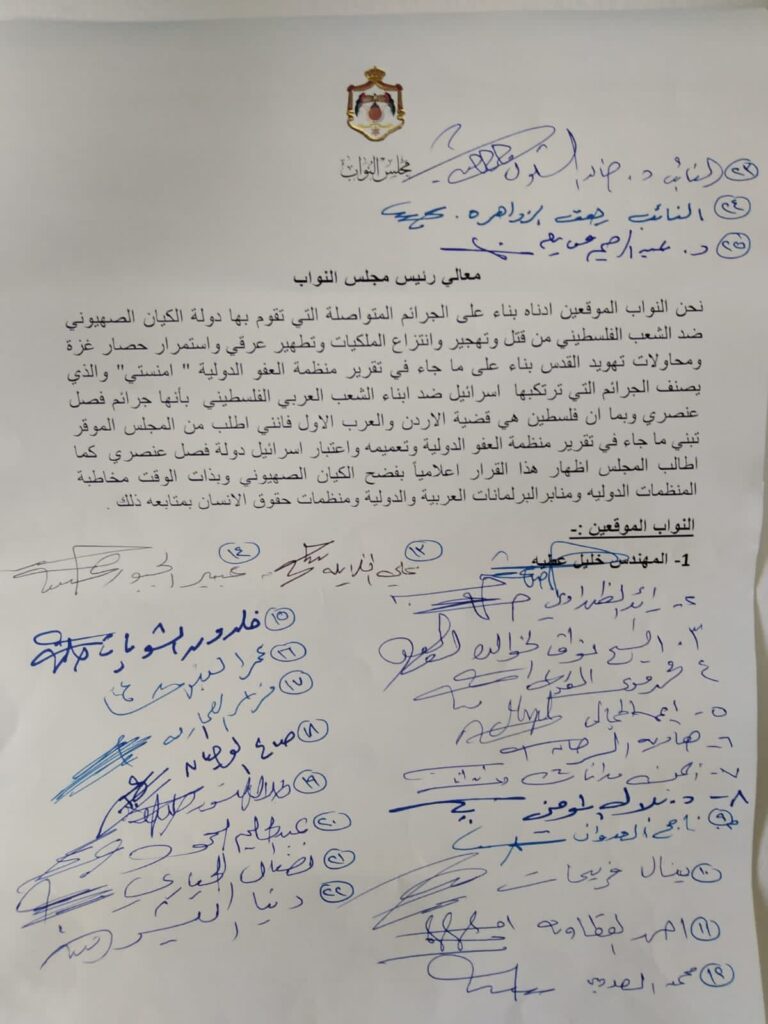 مجلس النواب
٢٣ النائب د. خالد الشلول
٢٤ النائب رفعت الزواهره.
٢٥ د. عبد الرحيم
معالي رئيس مجلس النواب
نحن النواب الموقعين ادناه بناء على الجرائم المتواصلة التي تقوم بها دولة الكيان الصهيوني
ضد الشعب الفلسطيني من قتل وتهجير وانتزاع الملكيات وتطهير عرقي واستمرار حصار غزة
ومحاولات تهويد القدس بناء على ما جاء في تقرير منظمة العفو الدولية " امنستي" والذي
يصنف الجرائم التي ترتكبها اسرائيل ضد ابناء الشعب العربي الفلسطيني بأنها جرائم فصل
عنصري وبما ان فلسطين هي قضية الاردن والعرب الاول فانني اطلب من المجلس الموقر
تبني ما جاء في تقرير منظمة العفو الدولية وتعميمه واعتبار اسرائيل دولة فصل عنصري كما
اطالب المجلس اظهار هذا القرار اعلامياً بفضح الكيان الصهيوني وبذات الوقت مخاطبة
المنظمات الدوليه ومنابرالبرلمانات العربية والدولية ومنظمات حقوق الانسان بمتابعه ذلك .
النواب الموقعين :-
1- المهندس خليل عطيه
٢- رائد الظهراوي
٣. الشيخ نواف الخوالده
٤
٥- ايمن المجالي
٦-
٧-
٨- د. بلال المومني
٩ ناجح العدوان
١٠ ينال فريحات
١١ احمد القطاونه
١٢ محمد
١٣ علي الخلايله
١٤ عبير الجبور
١٥ خلدون الشويات
١٦ عمر
١٧
١٨ صالح
١٩
٢٠ عبدالحليم
٢١ نضال الحياري
٢٢ دنيا